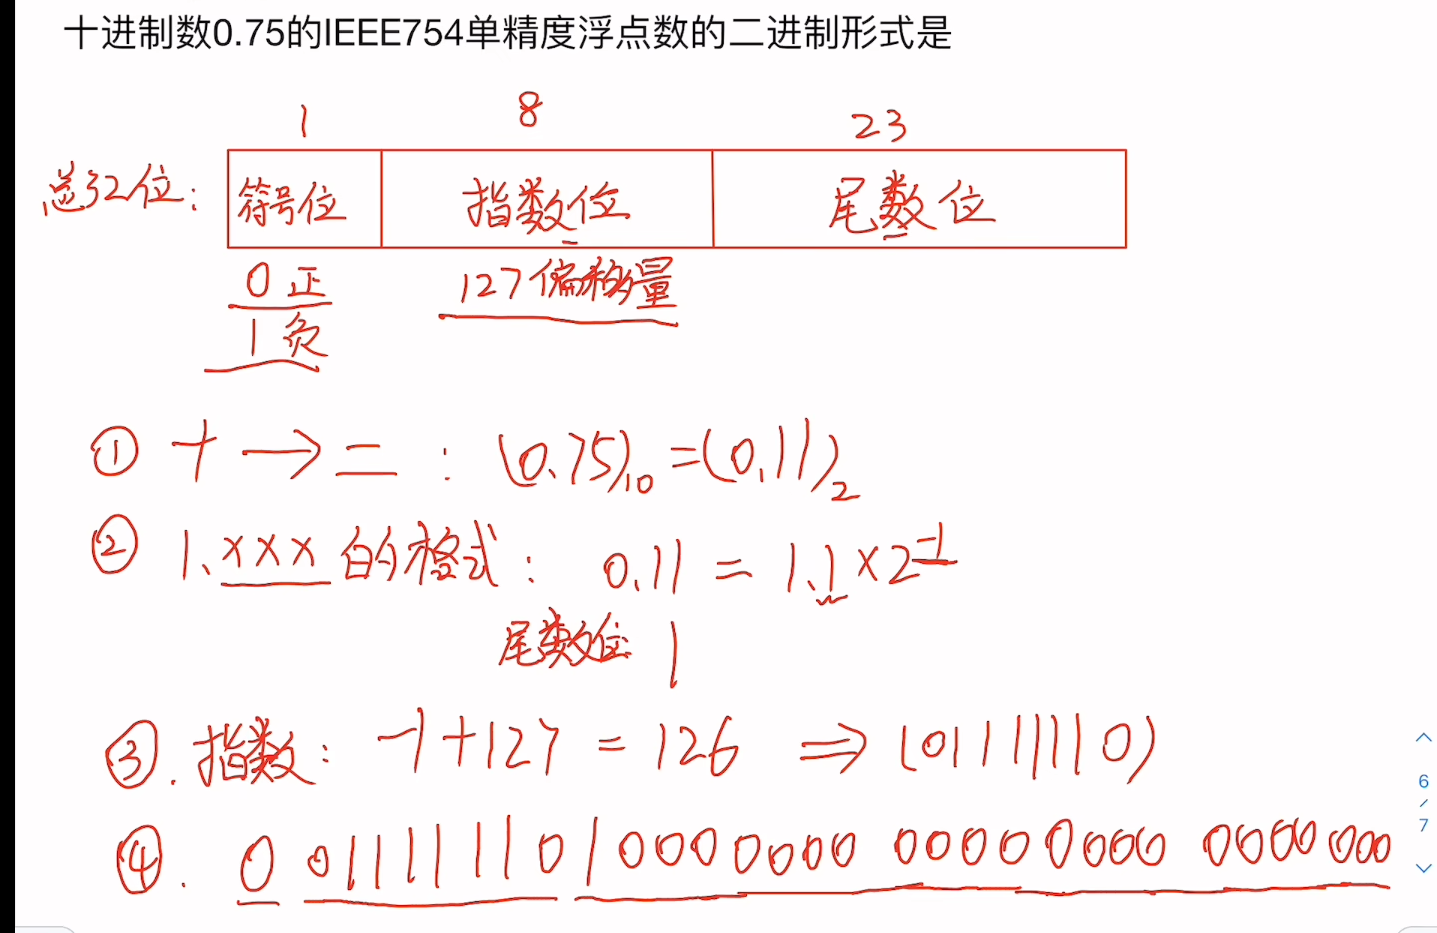 十进制数0.75的IEEE754单精度浮点数的二进制形式是
1 8 23
总32位: 符号位 指数位 尾数位
0 正 127偏移量
1 负
① 十→二 : (0.75)10=(0.11)2
② 1.xxx 的格式: 0.11 = 1.1×2-1
尾数位: 1
③. 指数: -1+127 = 126 ⇒ (01111110)
④. 0 01111110 10000000 00000000 0000000
6
/
7